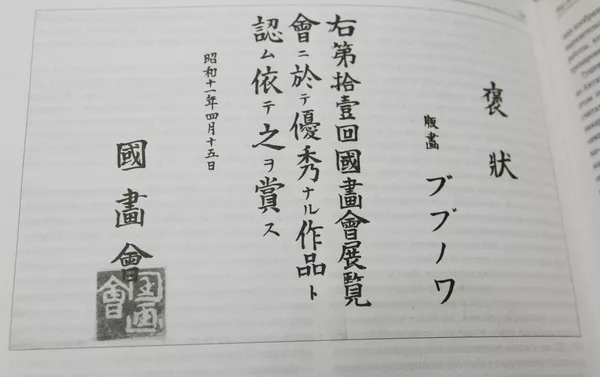 褒狀
版畫 ブブノワ
右第拾壹回國畫會展覧
會ニ於テ優秀ナル作品ト
認ム依テ之ヲ賞ス
昭和十一年四月十五日
國畫會
国画
會